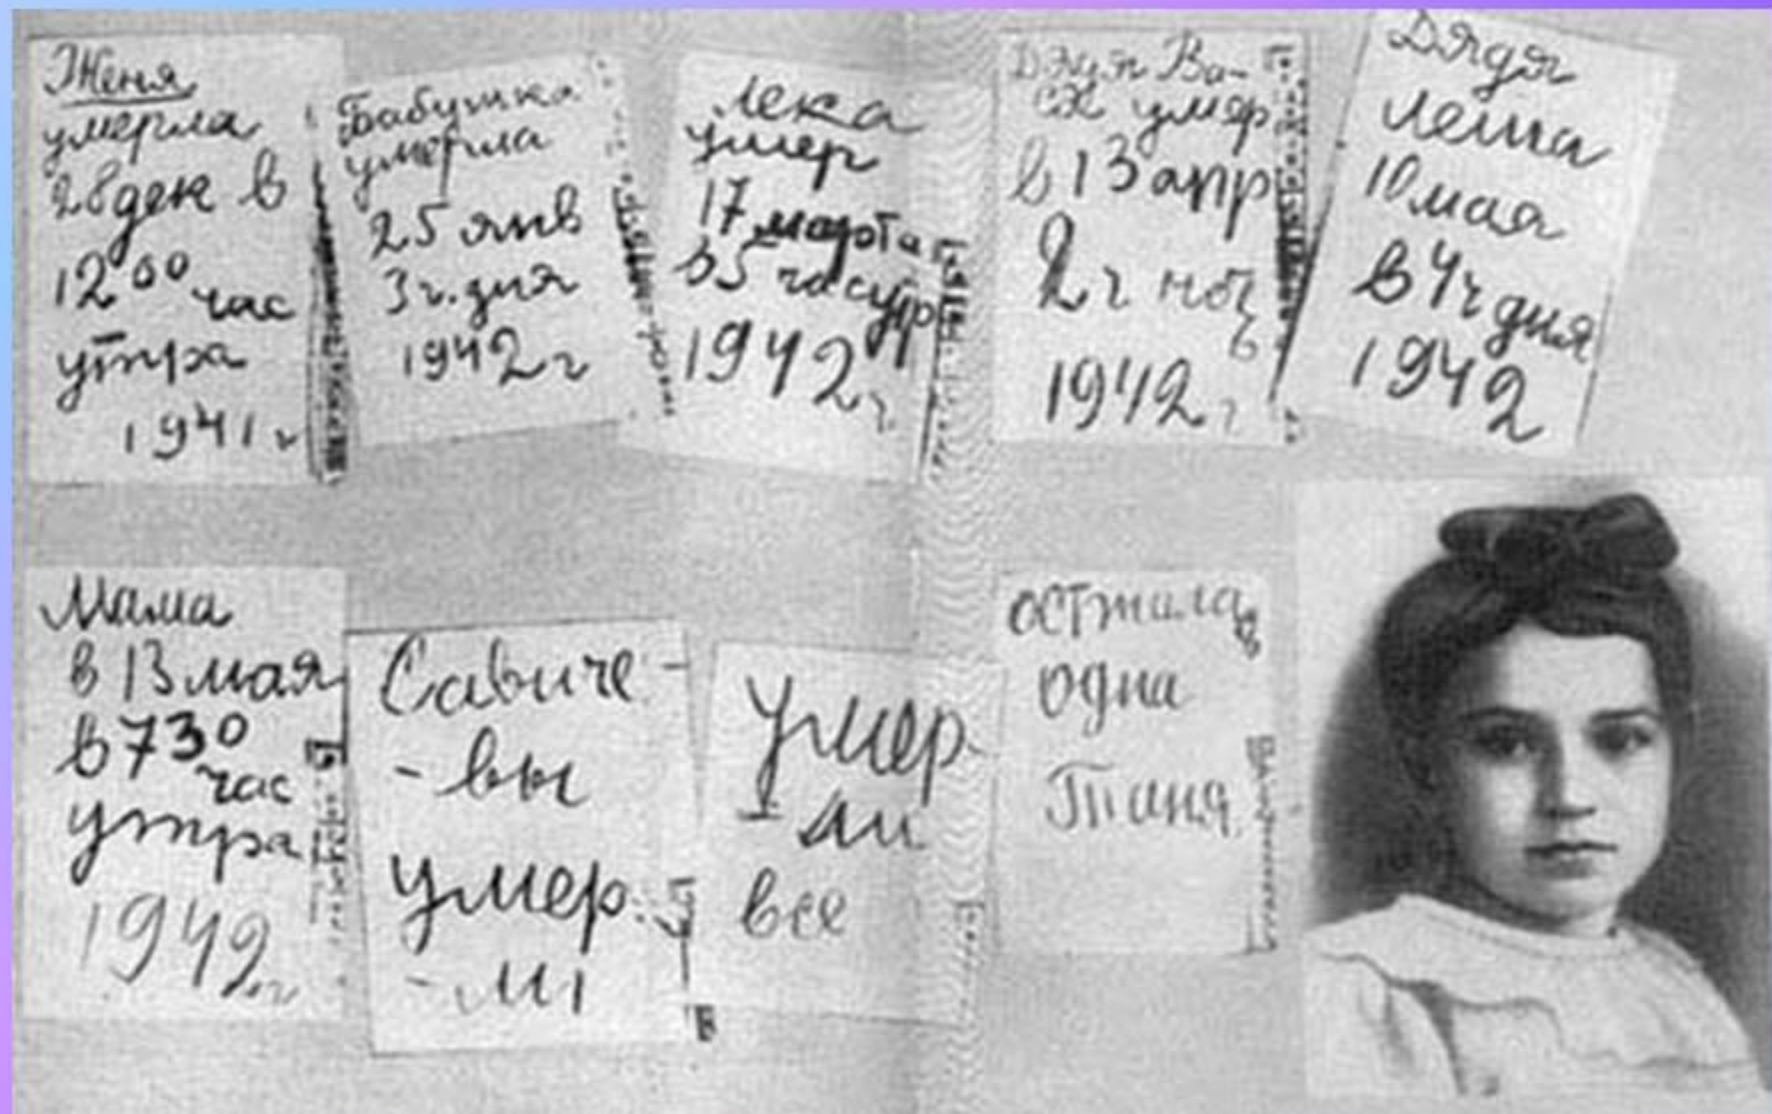 Женя
умерла
28 дек в
12⁰⁰ час
утра
1941 г
Бабушка
умерла
25 янв
3 ч. дня
1942 г
Лека
умер
17 марта
в 5 час утр
1942 г
Дядя Ва-
ся умер
в 13 апр
2 ч ночь
1942 г
Дядя
Леша
10 мая
в 4 ч дня
1942
Мама
в 13 мая
в 7 30
час
утра
1942 г
Савиче-
-вы
умер
-ли
Умер
ли
все
осталась
одна
Таня